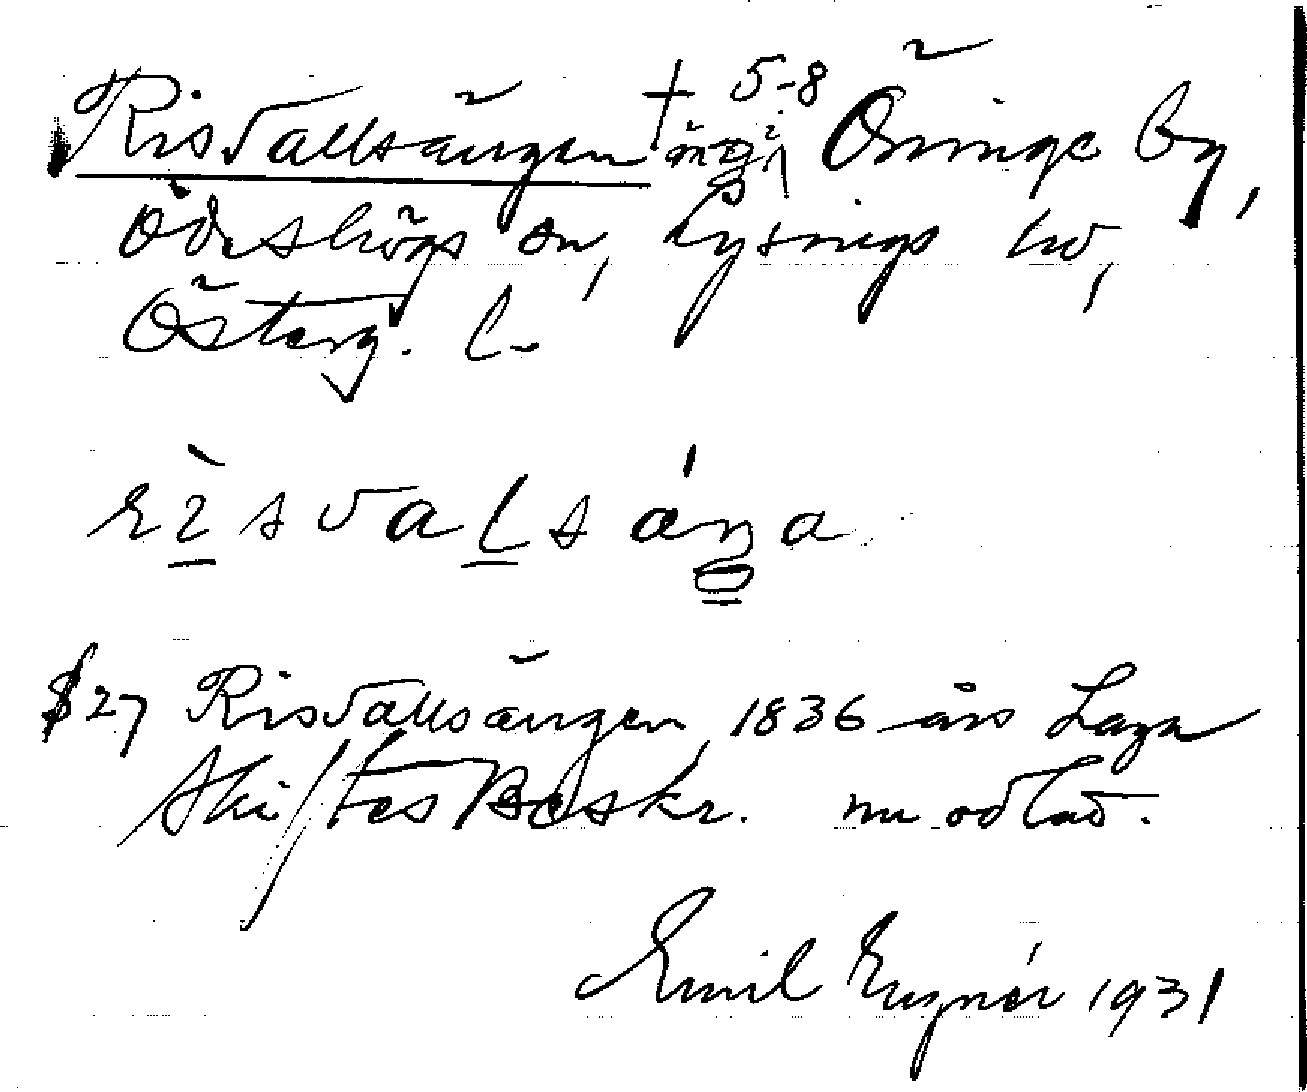 Risvallsängen † äng i 5-8 Öninge by,
Ödeshögs sn, Lysings hd,
Österg. l.
rìsvalsáŋa
§27 Risvallsängen, 1836 års Laga
Skiftes Beskr. nu odlad.
Emil Engnér 1931